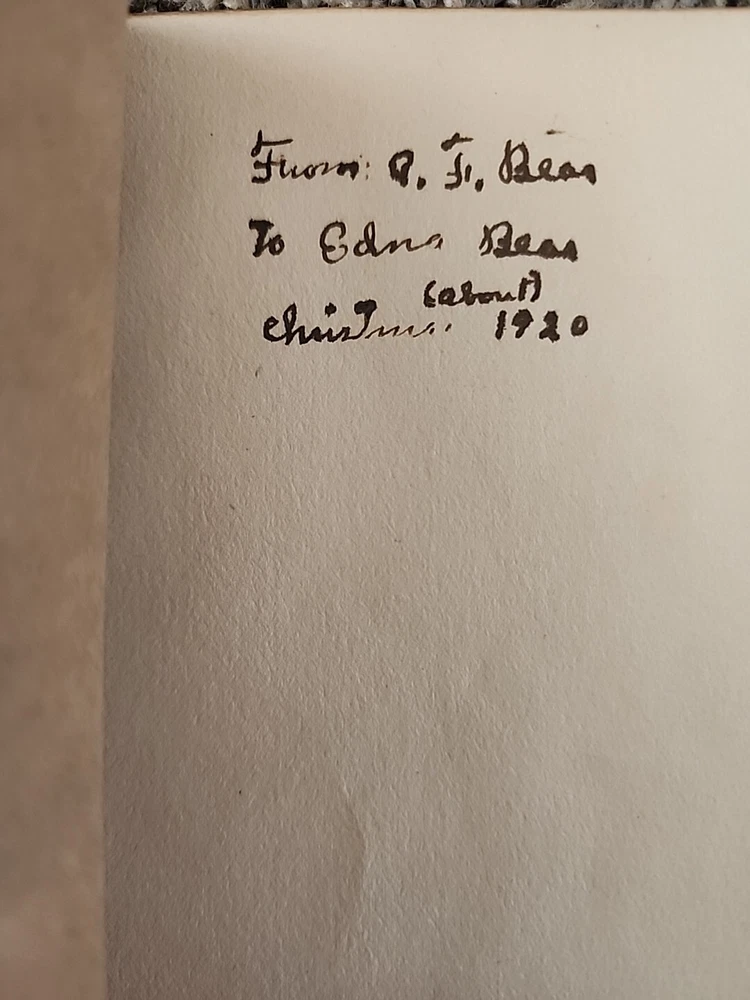 From: F. Bear
To Edna Bear
(about)
Christmas 1920